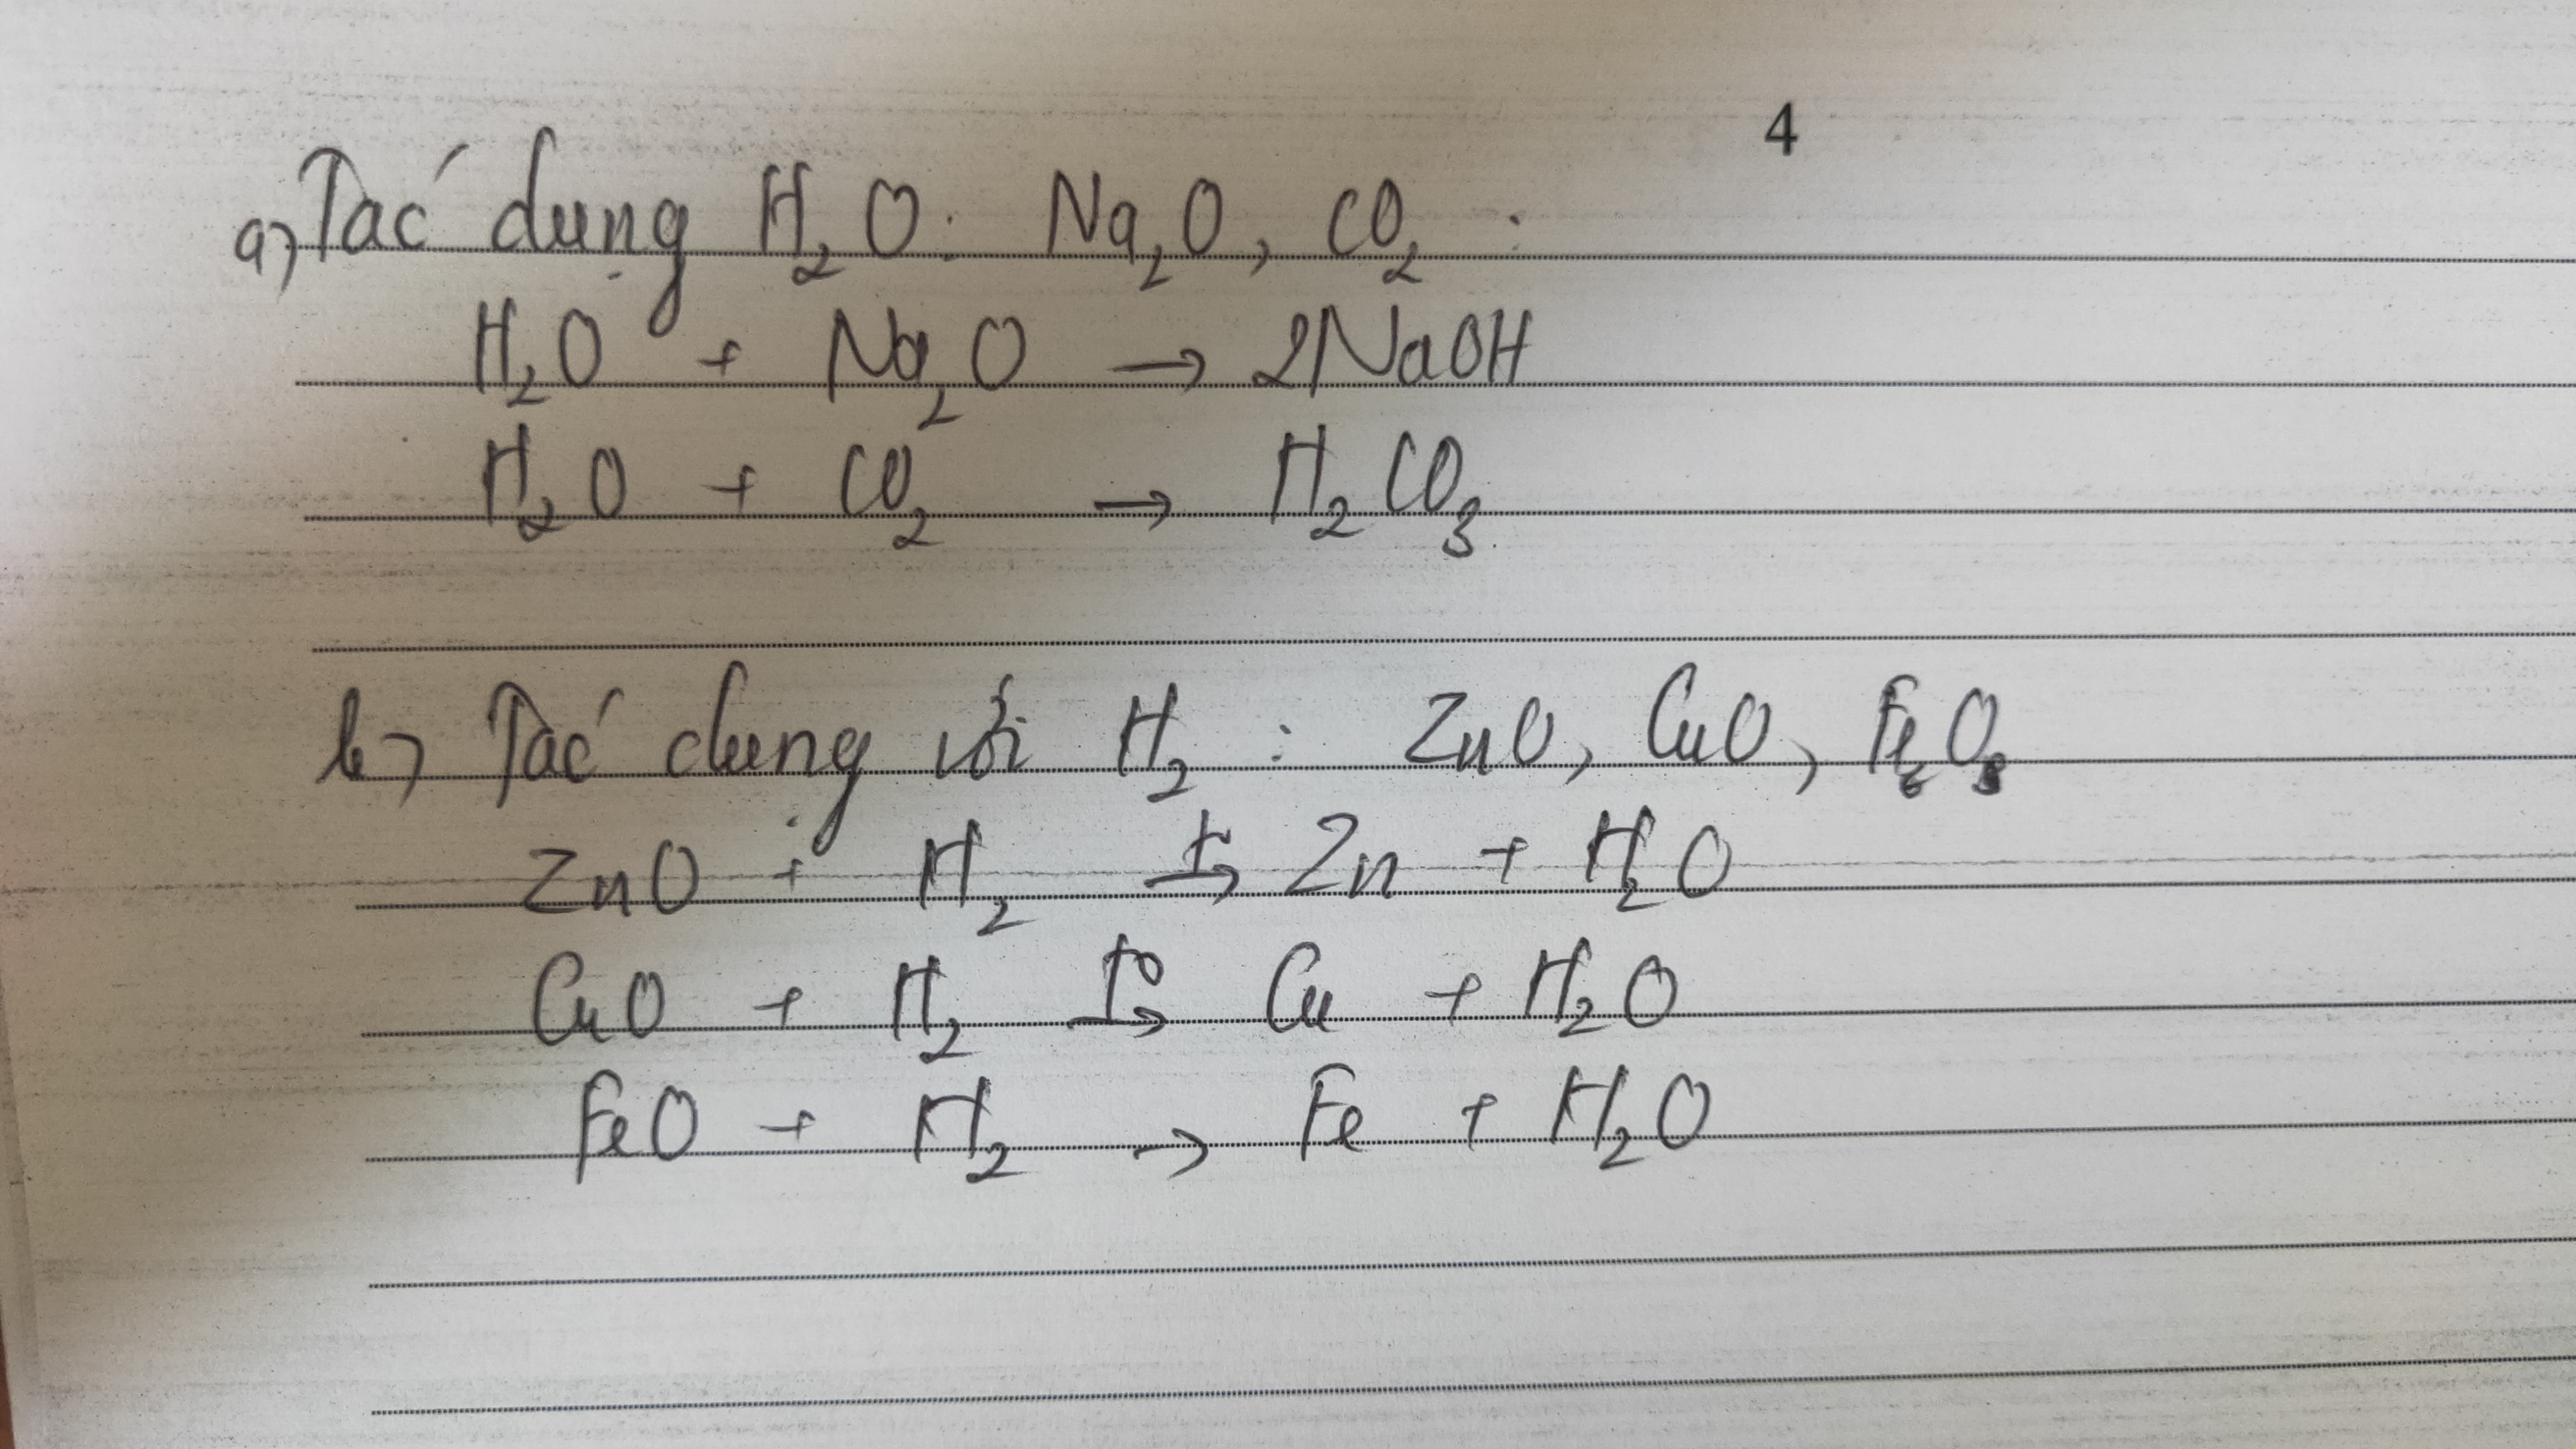 4
a) Tác dụng H₂O: Na₂O, CO₂ :
H₂O + Na₂O → 2NaOH
H₂O + CO₂ → H₂CO₃.
b) Tác dụng với H₂ : ZnO, CuO, Fe₂O₃
ZnO + H₂ t°→ Zn + H₂O
CuO + H₂ t°→ Cu + H₂O
FeO + H₂ → Fe + H₂O